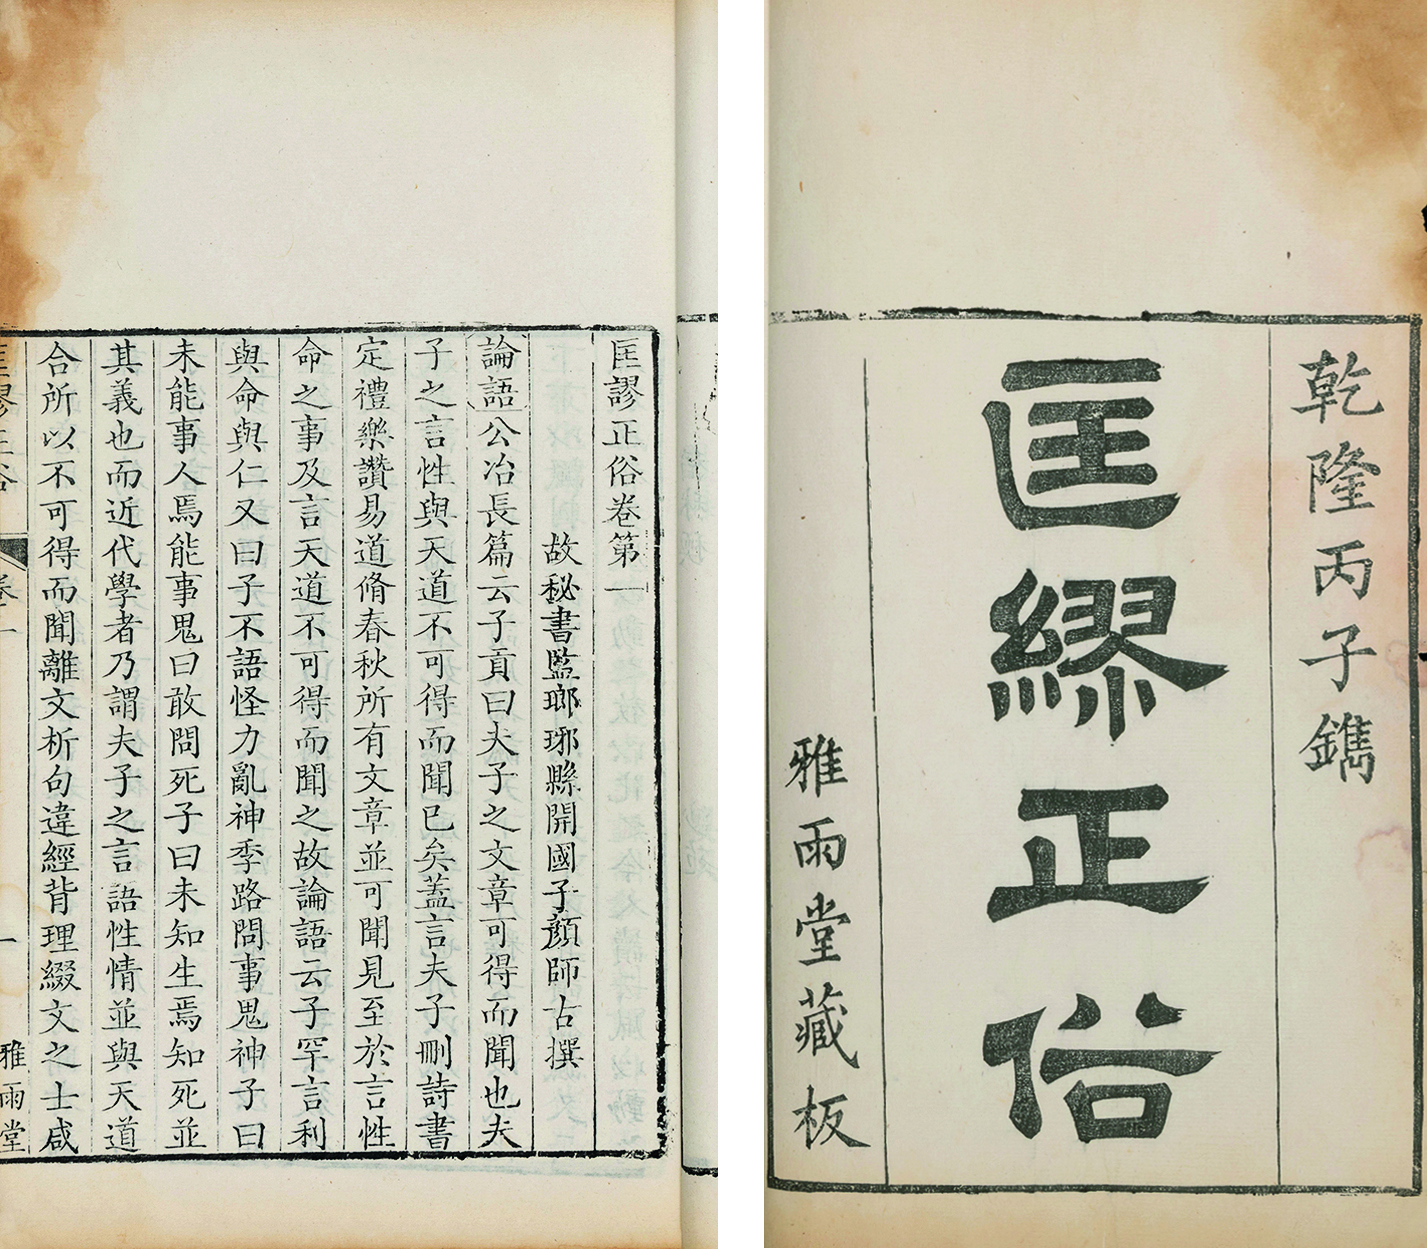 乾隆丙子鐫
匡繆正俗
雅雨堂藏板
匡謬正俗卷第一
故秘書監瑯琊縣開國子顔師古撰
論語公冶長篇云子貢曰夫子之文章可得而聞也夫
子之言性與天道不可得而聞已矣蓋言夫子刪詩書
定禮樂讚易道脩春秋所有文章並可聞見至於言性
命之事及言天道不可得而聞之故論語云子罕言利
與命與仁又曰子不語怪力亂神季路問事鬼神子曰
未能事人焉能事鬼曰敢問死子曰未知生焉知死並
其義也而近代學者乃謂夫子之言語性情並與天道
合所以不可得而聞離文析句違經背理綴文之士咸
匡謬正俗 卷一 一 雅雨堂